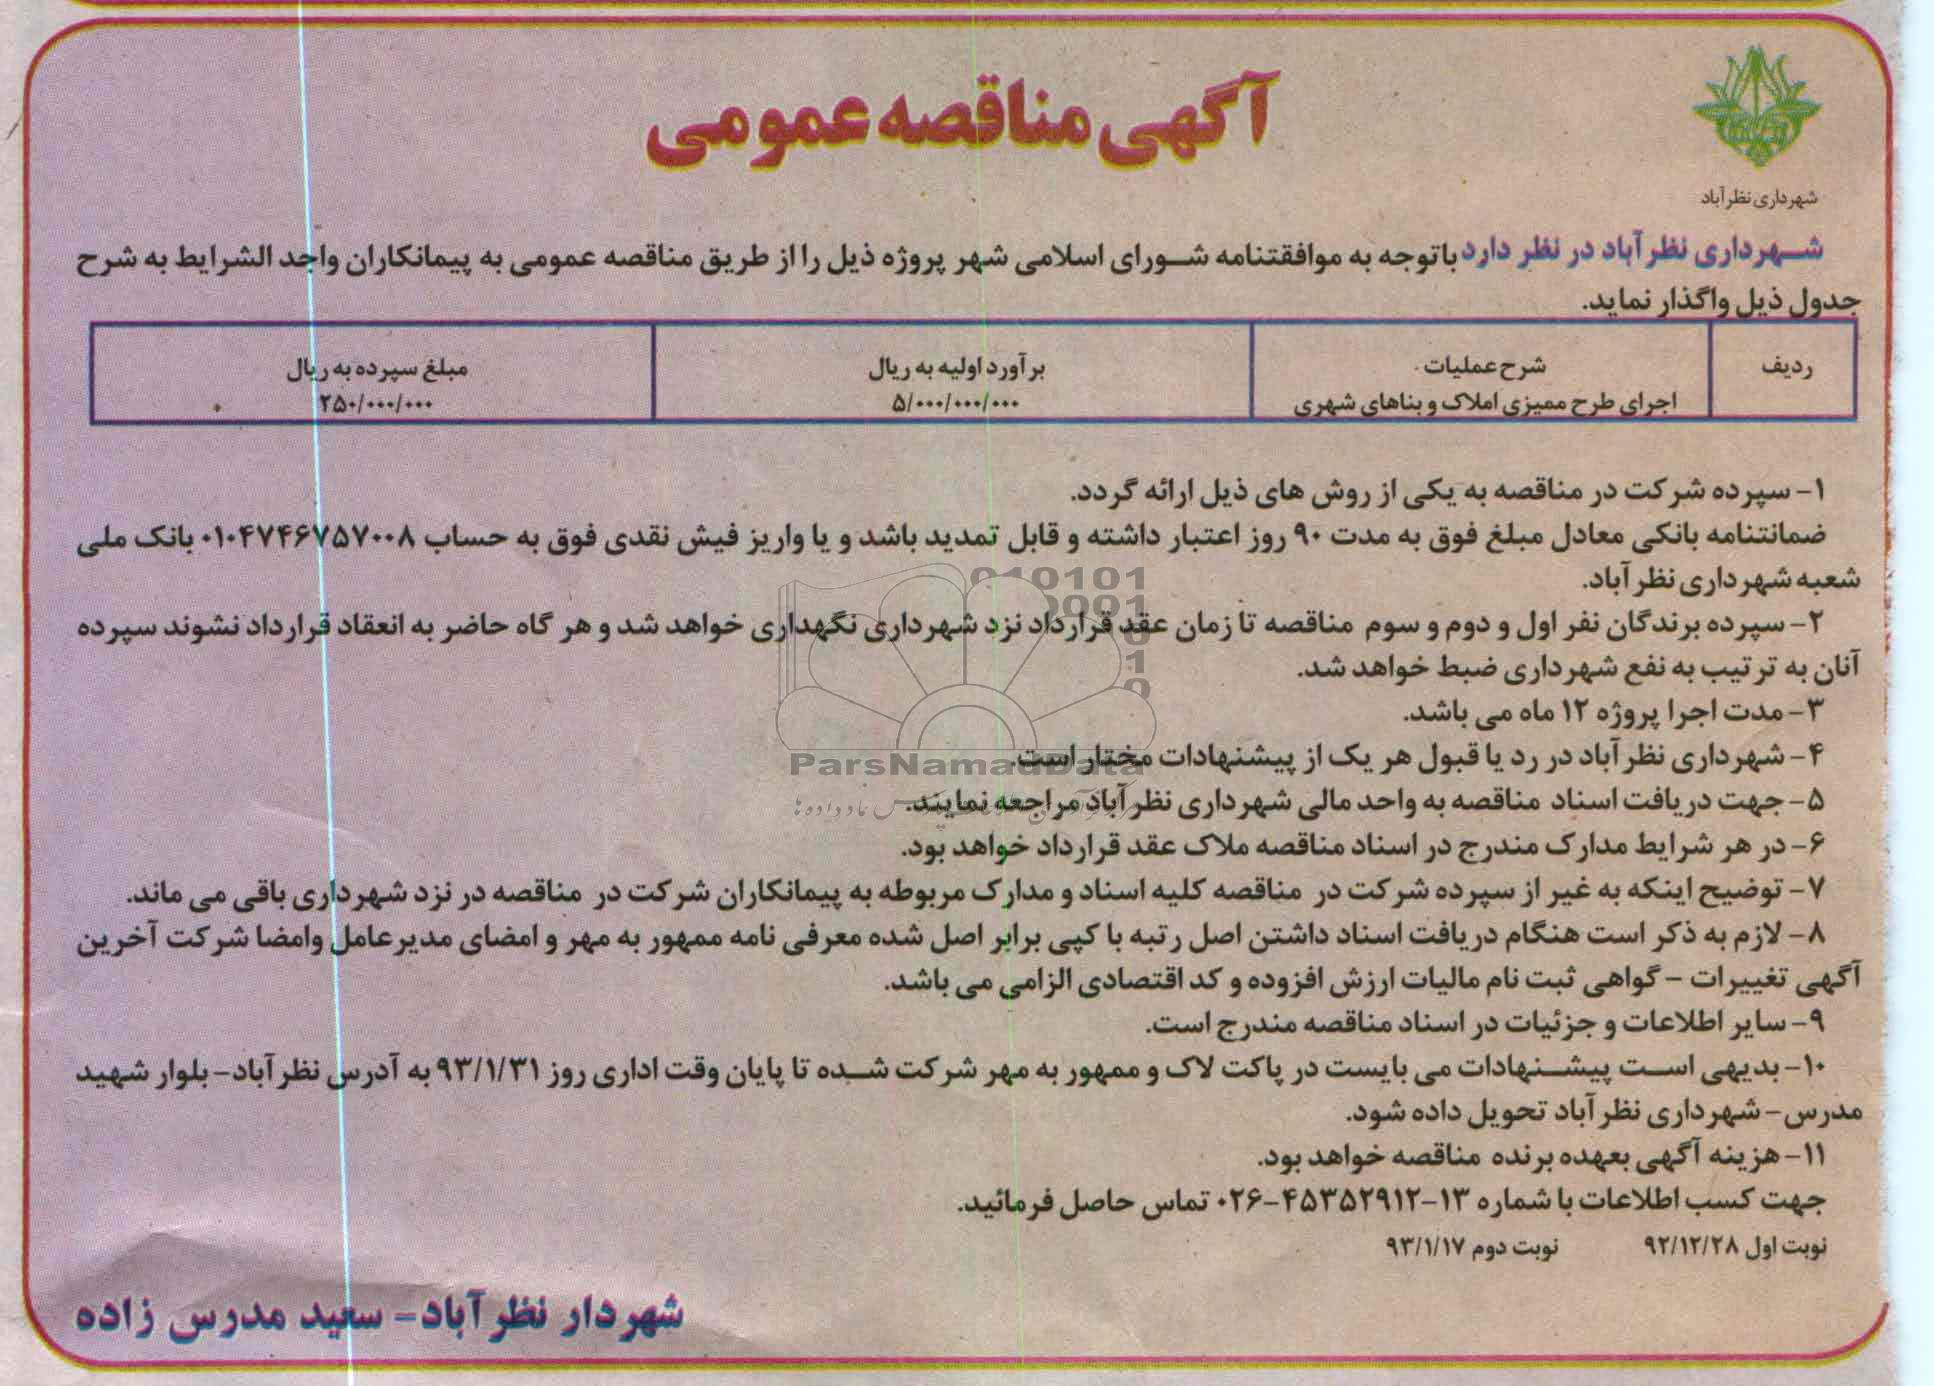 آگهی مناقصه عمومی
شهرداری نظرآباد
شهرداری نظرآباد در نظر دارد باتوجه به موافقتنامه شورای اسلامی شهر پروژه ذیل را از طریق مناقصه عمومی به پیمانکاران واجد الشرایط به شرح
جدول ذیل واگذار نماید.
ردیف شرح عملیات برآورد اولیه به ریال مبلغ سپرده به ریال
اجرای طرح ممیزی املاک و بناهای شهری ۵/۰۰۰/۰۰۰/۰۰۰ ۲۵۰/۰۰۰/۰۰۰
۱- سپرده شرکت در مناقصه به یکی از روش های ذیل ارائه گردد.
ضمانتنامه بانکی معادل مبلغ فوق به مدت ۹۰ روز اعتبار داشته و قابل تمدید باشد و یا واریز فیش نقدی فوق به حساب ۰۱۰۴۷۴۶۷۵۷۰۰۸ بانک ملی
شعبه شهرداری نظرآباد.
۲- سپرده برندگان نفر اول و دوم و سوم مناقصه تا زمان عقد قرارداد نزد شهرداری نگهداری خواهد شد و هر گاه حاضر به انعقاد قرارداد نشوند سپرده
آنان به ترتیب به نفع شهرداری ضبط خواهد شد.
۳- مدت اجرا پروژه ۱۲ ماه می باشد.
۴- شهرداری نظرآباد در رد یا قبول هر یک از پیشنهادات مختار است.
۵- جهت دریافت اسناد مناقصه به واحد مالی شهرداری نظرآباد مراجعه نمایند.
۶- در هر شرایط مدارک مندرج در اسناد مناقصه ملاک عقد قرارداد خواهد بود.
۷- توضیح اینکه به غیر از سپرده شرکت در مناقصه کلیه اسناد و مدارک مربوطه به پیمانکاران شرکت در مناقصه در نزد شهرداری باقی می ماند.
۸- لازم به ذکر است هنگام دریافت اسناد داشتن اصل رتبه با کپی برابر اصل شده معرفی نامه ممهور به مهر و امضای مدیرعامل وامضا شرکت آخرین
آگهی تغییرات - گواهی ثبت نام مالیات ارزش افزوده و کد اقتصادی الزامی می باشد.
۹- سایر اطلاعات و جزئیات در اسناد مناقصه مندرج است.
۱۰- بدیهی است پیشنهادات می بایست در پاکت لاک و ممهور به مهر شرکت شده تا پایان وقت اداری روز ۹۳/۱/۳۱ به آدرس نظرآباد- بلوار شهید
مدرس- شهرداری نظرآباد تحویل داده شود.
۱۱- هزینه آگهی بعهده برنده مناقصه خواهد بود.
جهت کسب اطلاعات با شماره ۱۳-۴۵۳۵۲۹۱۲-۰۲۶ تماس حاصل فرمائید.
نوبت اول ۹۲/۱۲/۲۸ نوبت دوم ۹۳/۱/۱۷
شهردار نظرآباد- سعید مدرس زاده
ParsNamadData